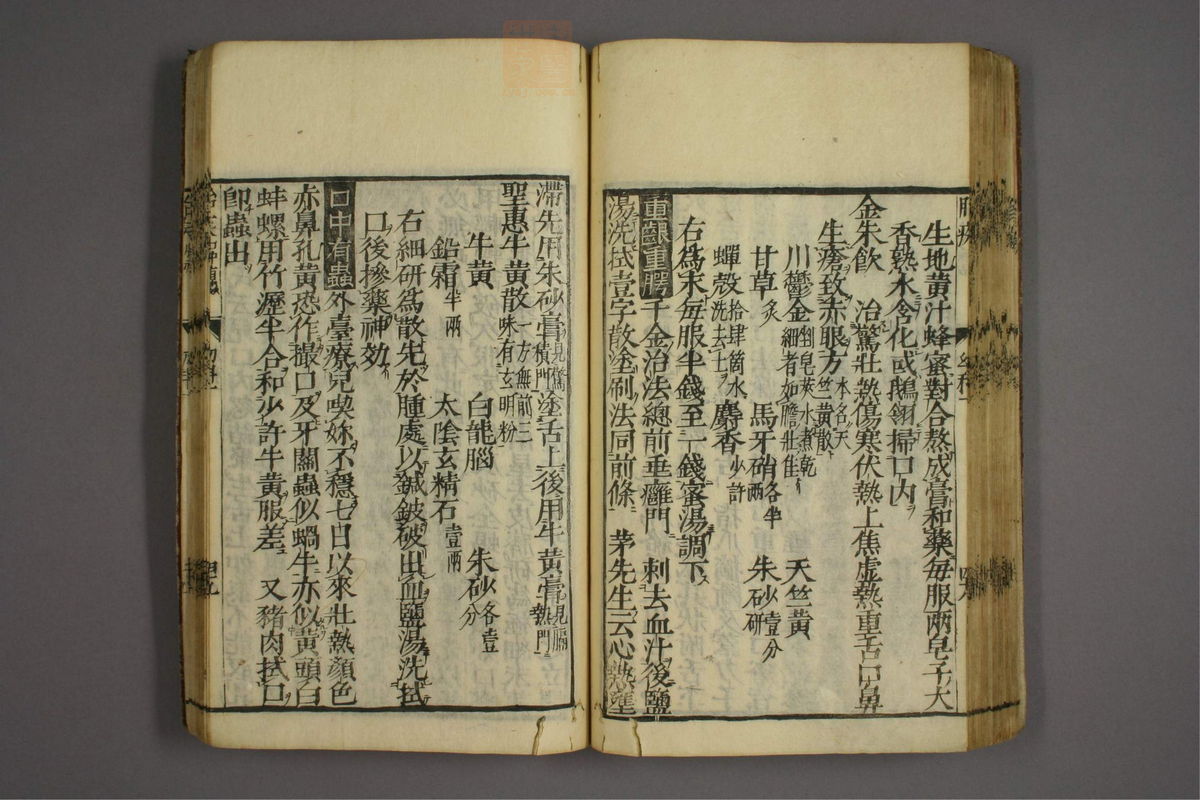 生地黄汁蜂蜜對合熬成膏和藥毎服兩皂子大
香熟水含化或鵝翎掃口内
金朱飲　治驚壯熱傷寒伏熱上焦虚熱重舌口鼻
生瘡致赤眼方本名天竺黄散
川鬱金細者如膽壯佳皂莢水煮乾　天竺黄
甘草炙　馬牙硝各半兩　朱砂壹分研
蟬殻拾肆箇水洗去土　麝香少許
右爲末毎服半錢至一錢蜜湯調下
重齗重腭千金治法總前垂癰門　刺去血汁後鹽
湯洗拭壹字散塗刷法同前條　茅先生云心熱壅
滯先用朱砂膏見驚積門塗舌上後用牛黄膏見膈熱門
聖惠牛黄散一方無前三味有玄明粉
牛黄　白龍腦　朱砂各壹分
鉛霜半兩　太陰玄精石壹兩
右細研爲散先於腫處以鍼鈹破出血鹽湯洗拭
口後摻藥神効
口中有蟲外臺療兒喫妳不穩七日以來壯熱顔色
赤鼻孔黄恐作撮口及牙關蟲似蝸牛亦似黄頭白
蚌螺用竹瀝半合和少許牛黄服差　又豬肉拭口
卽蟲出